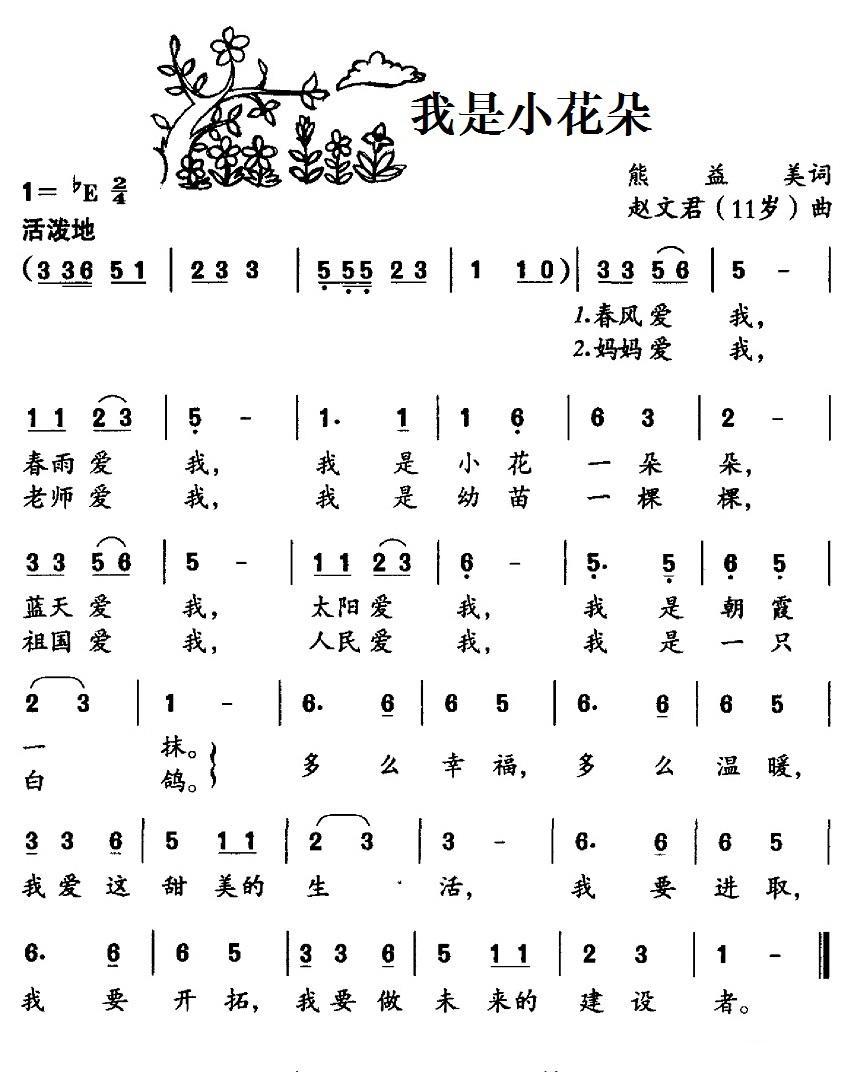 我是小花朵
熊益美词
1=♭E 2/4
赵文君（11岁）曲
活泼地
(3 36 51 | 23 3 | 5 55 23 | 1 10) | 33 56 | 5 - |
1.春风爱我,
2.妈妈爱我,
11 23 | 5 - | 1. 1 | 1 6 | 6 3 | 2 - |
春雨爱我, 我是小花一朵朵,
老师爱我, 我是幼苗一棵棵,
33 56 | 5 - | 11 23 | 6 - | 5. 5 | 6 5 |
蓝天爱我, 太阳爱我, 我是朝霞
祖国爱我, 人民爱我, 我是一只
2 3 | 1 - | 6. 6 | 6 5 | 6. 6 | 6 5 |
一抹。 多么幸福, 多么温暖,
白鸽。
3 3 6 | 5 11 | 2 3 | 3 - | 6. 6 | 6 5 |
我爱这甜美的生·活, 我要进取,
6. 6 | 6 5 | 3 3 6 | 5 11 | 2 3 | 1 - ‖
我要开拓, 我要做未来的建设者。